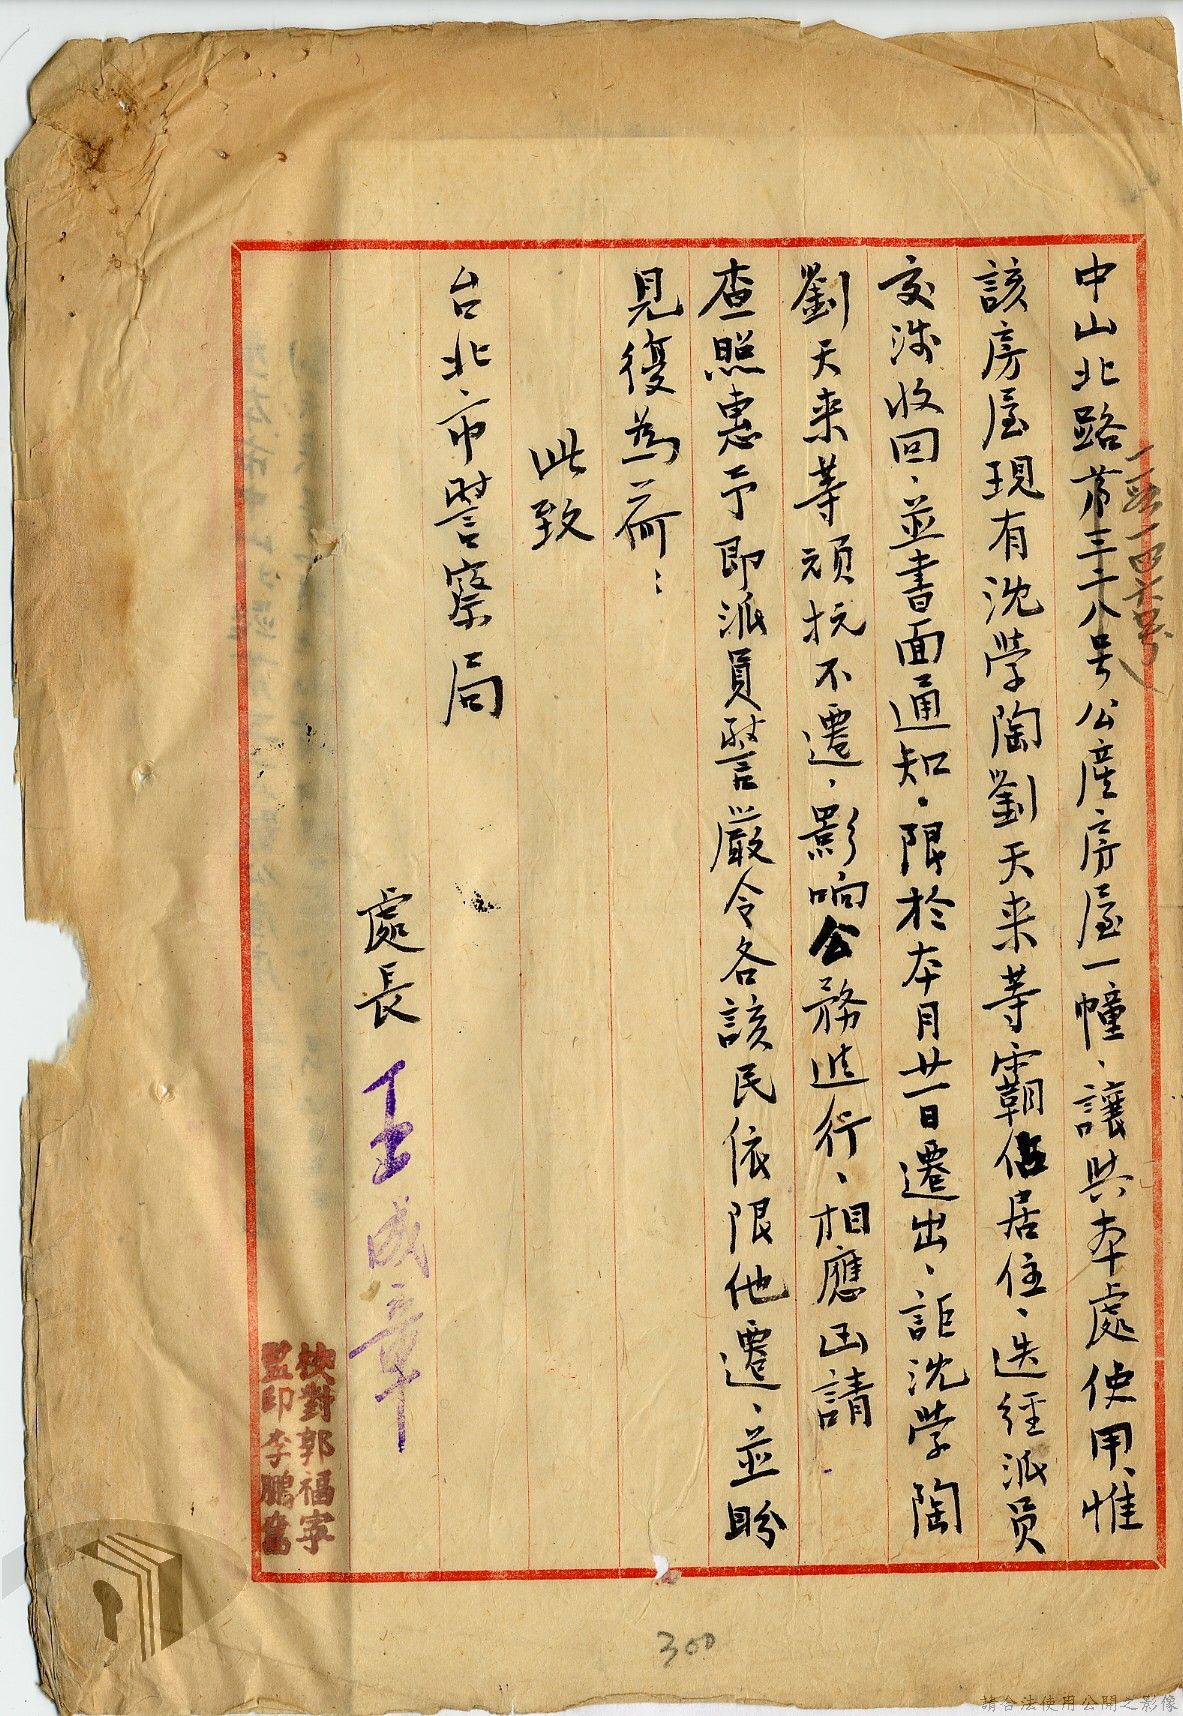 中山北路第三二八号公產房屋一幢、讓與本處使用、惟
該房屋現有沈學陶劉天来等霸佔居住、迭經派員
交涉收回、並書面通知、限於本月廿一日遷出、詎沈學陶
劉天来等頑抗不遷、影响公務進行、相應函請
查照惠予即派員警嚴令各該民依限他遷、並盼
見復為荷：
此致
台北市警察局
處長 王成章
校對郭福寧
監印李鵬奮
300
請合法使用公開之影像